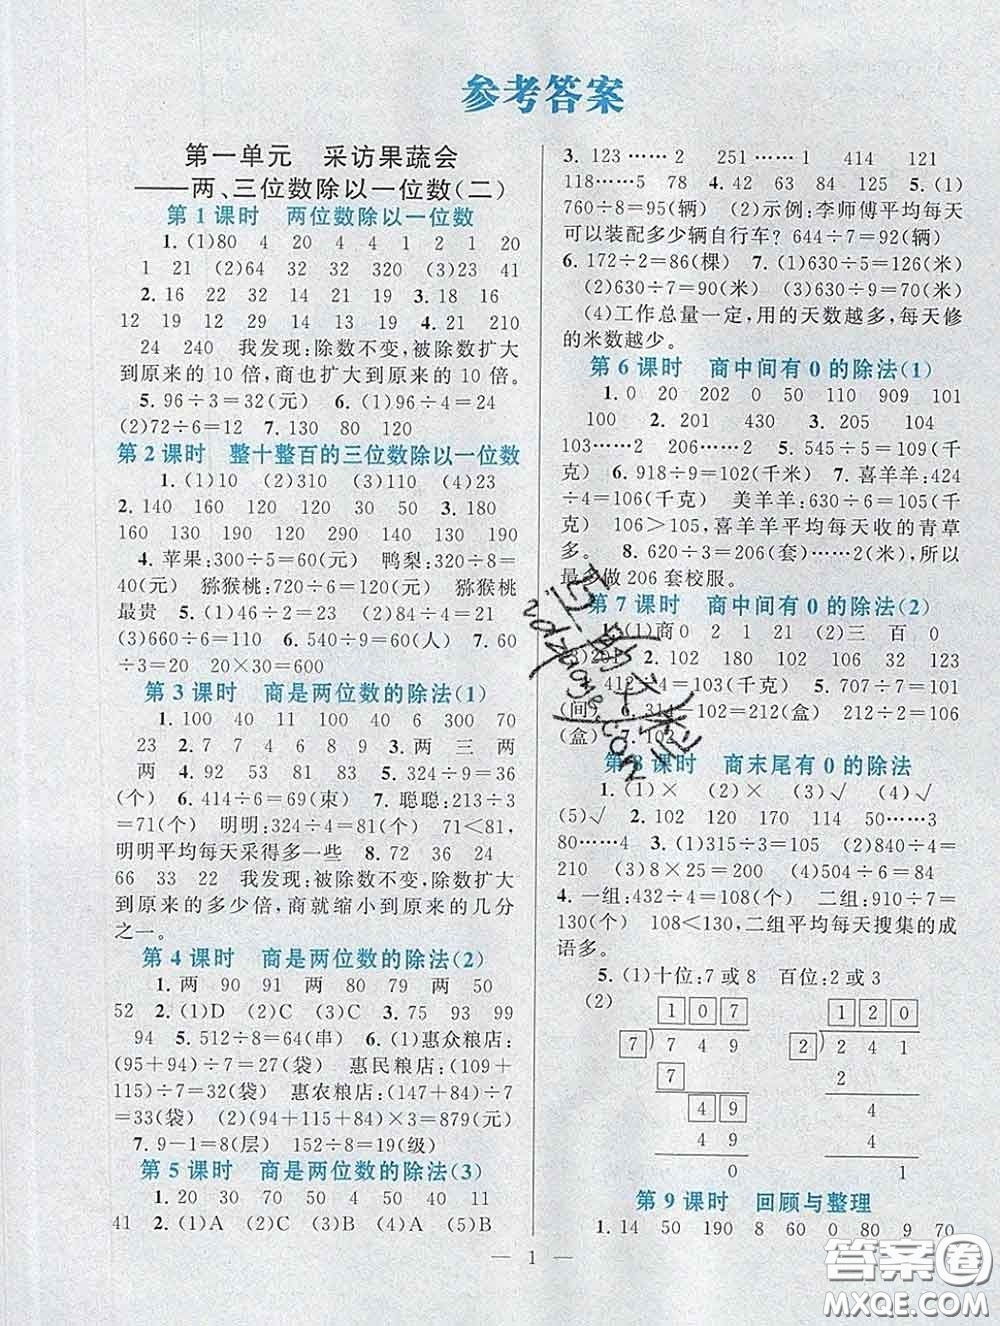 参考答案
第一单元 采访果蔬会
——两、三位数除以一位数(二)
第1课时 两位数除以一位数
1. (1)80 4 20 4 4 1 2 1 20
1 21 (2)64 32 32 320 (3)23 41
2. 16 22 38 12 21 19 3. 18 16
12 19 29 14 13 19 4. 21 210
24 240 我发现:除数不变,被除数扩大
到原来的 10 倍,商也扩大到原来的 10 倍。
5. 96÷3=32(元) 6. (1)96÷4=24
(2)72÷6=12 7. 130 80 120
第2课时 整十整百的三位数除以一位数
1. (1)10 (2)310 (3)110 (4)23
2. 140 160 120 90 300 180 3. 120
160 130 190 120 290 150 130 190
4. 苹果:300÷5=60(元) 鸭梨:320÷8=
40(元) 猕猴桃:720÷6=120(元) 猕猴桃
最贵 5. (1)240÷2=120 (2)84÷4=21
(3)660÷6=110 6. 540÷9=60(人) 7. 60
÷3=20 20×30=600
第3课时 商是两位数的除法(1)
1. 100 40 11 50 1 100 300 70
23 2. 7 7 4 6 8 9 3. 两 三 两
两 4. 92 53 81 82 5. 324÷9=36
(个) 6. 414÷6=69(束) 7. 聪聪:213÷3
=71(个) 明明:324÷4=81(个) 71<81,
明明平均每天采得多一些 8. 72 36 24
66 33 22 我发现:被除数不变,除数扩大
到原来的多少倍,商就缩小到原来的几分
之一。
第4课时 商是两位数的除法(2)
1. 两 90 91 两 80 81 两 两 50
52 2. (1)D (2)C (3)C 3. 75 93 99
94 5. 512÷8=64(串) 6. (1)惠众粮店:
(95+94)÷7=27(袋) 惠民粮店:(109+
115)÷7=32(袋) 惠农粮店:(147+84)÷7
=33(袋) (2)(94+115+84)×3=879(元)
7. 9-1=8(层) 152÷8=19(级)
第5课时 商是两位数的除法(3)
1. 20 30 70 50 20 40 11
41 2. (1)A (2)C (3)B (4)A (5)B
3. 123……2 251……1 41 414 121
118……5 5. (1)
760÷8=95(辆) (2)示例:李师傅平均每天
可以装配多少辆自行车? 644÷7=92(辆)
6. 172÷2=86(棵) 7. (1)630÷5=126(米)
(2)630÷7=90(米) (3)630÷9=70(米)
(4)工作总量一定,用的天数越多,每天修
的米数越少。
第6课时 商中间有0的除法(1)
1. 0 20 202 0 50 110 909 101
100 2. 201 430 3. 205 104
103……2 206……2 5. 545÷5=109(千
克) 6. 918÷9=102(千米) 7. 喜羊羊:424
÷4=106(千克) 美羊羊:630÷6=105(千
克) 106>105,喜羊羊平均每天收的青草
多。 8. 620÷3=206(套)……2(米),所以
最多做 206 套校服。
第7课时 商中间有0的除法(2)
1. (1)商 0 2 1 21 (2)三 百 0
2. 102 180 102 106 132 123
412÷4=103(千克) 5. 707÷7=101
(间) 102=212(盒) 212÷2=106
(盒) 7. 102
第8课时 商末尾有0的除法
1. (1)× (2)× (3)√ (4)√
(5)√ 2. 102 120 170 114 50……3
80……4 3. (1)315÷3=105 (2)840÷4=
210 (3)8×25=200 (4)504÷6=84
4. 一组:432÷4=108(个) 二组:910÷7=
130(个) 108<130,二组平均每天搜集的成
语多。
5. (1)十位:7 或 8 百位:2 或 3
(2) 107 120
7)749 2)241
7 2
49 4
49 4
0 1
第9课时 回顾与整理
1. 14 50 190 8 60 0 80 9 70
— 1 —
答案圈
MXQE.COM